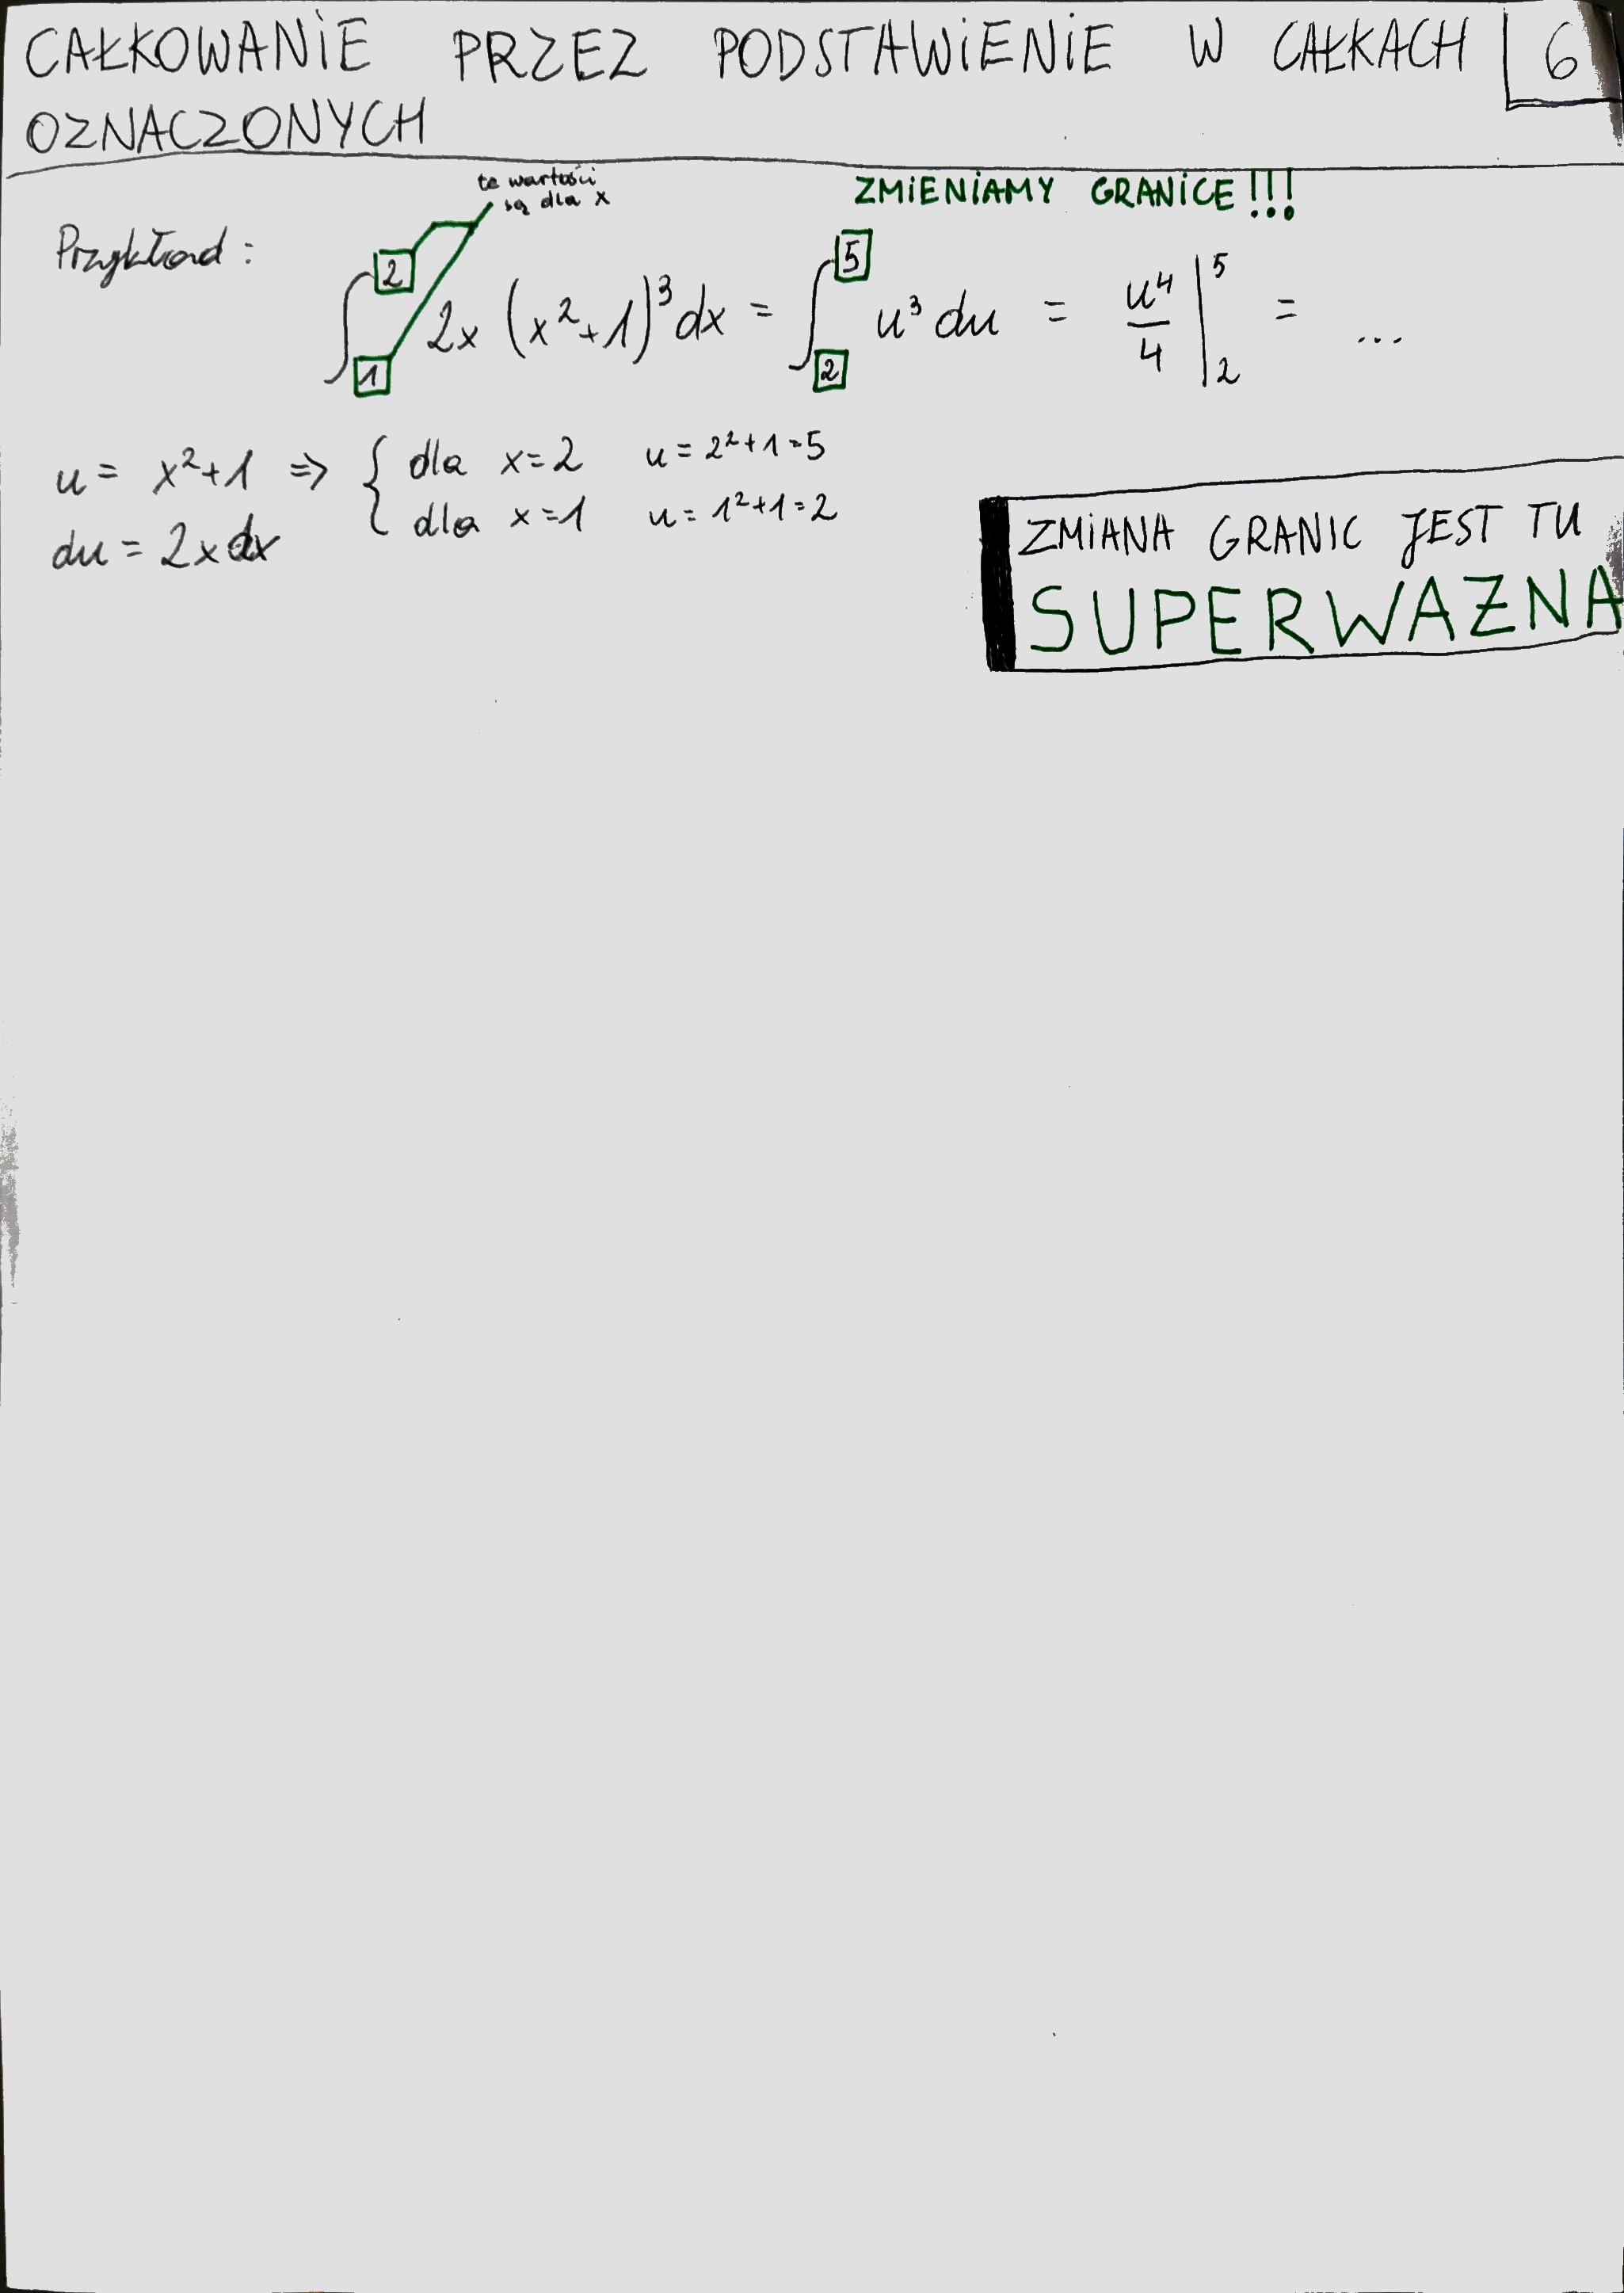 CAŁKOWANIE PRZEZ PODSTAWIENIE W CAŁKACH 6
OZNACZONYCH
te wartości
są dla x
ZMIENIAMY GRANICE!!!
Przykład:
∫₁² 2x (x²+1)³ dx = ∫₂⁵ u³ du = u⁴/4 |₂⁵ = ...
u = x²+1 ⇒ { dla x=2 u = 2²+1=5
dla x=1 u = 1²+1=2
du = 2x dx
ZMIANA GRANIC JEST TU
SUPERWAŻNA